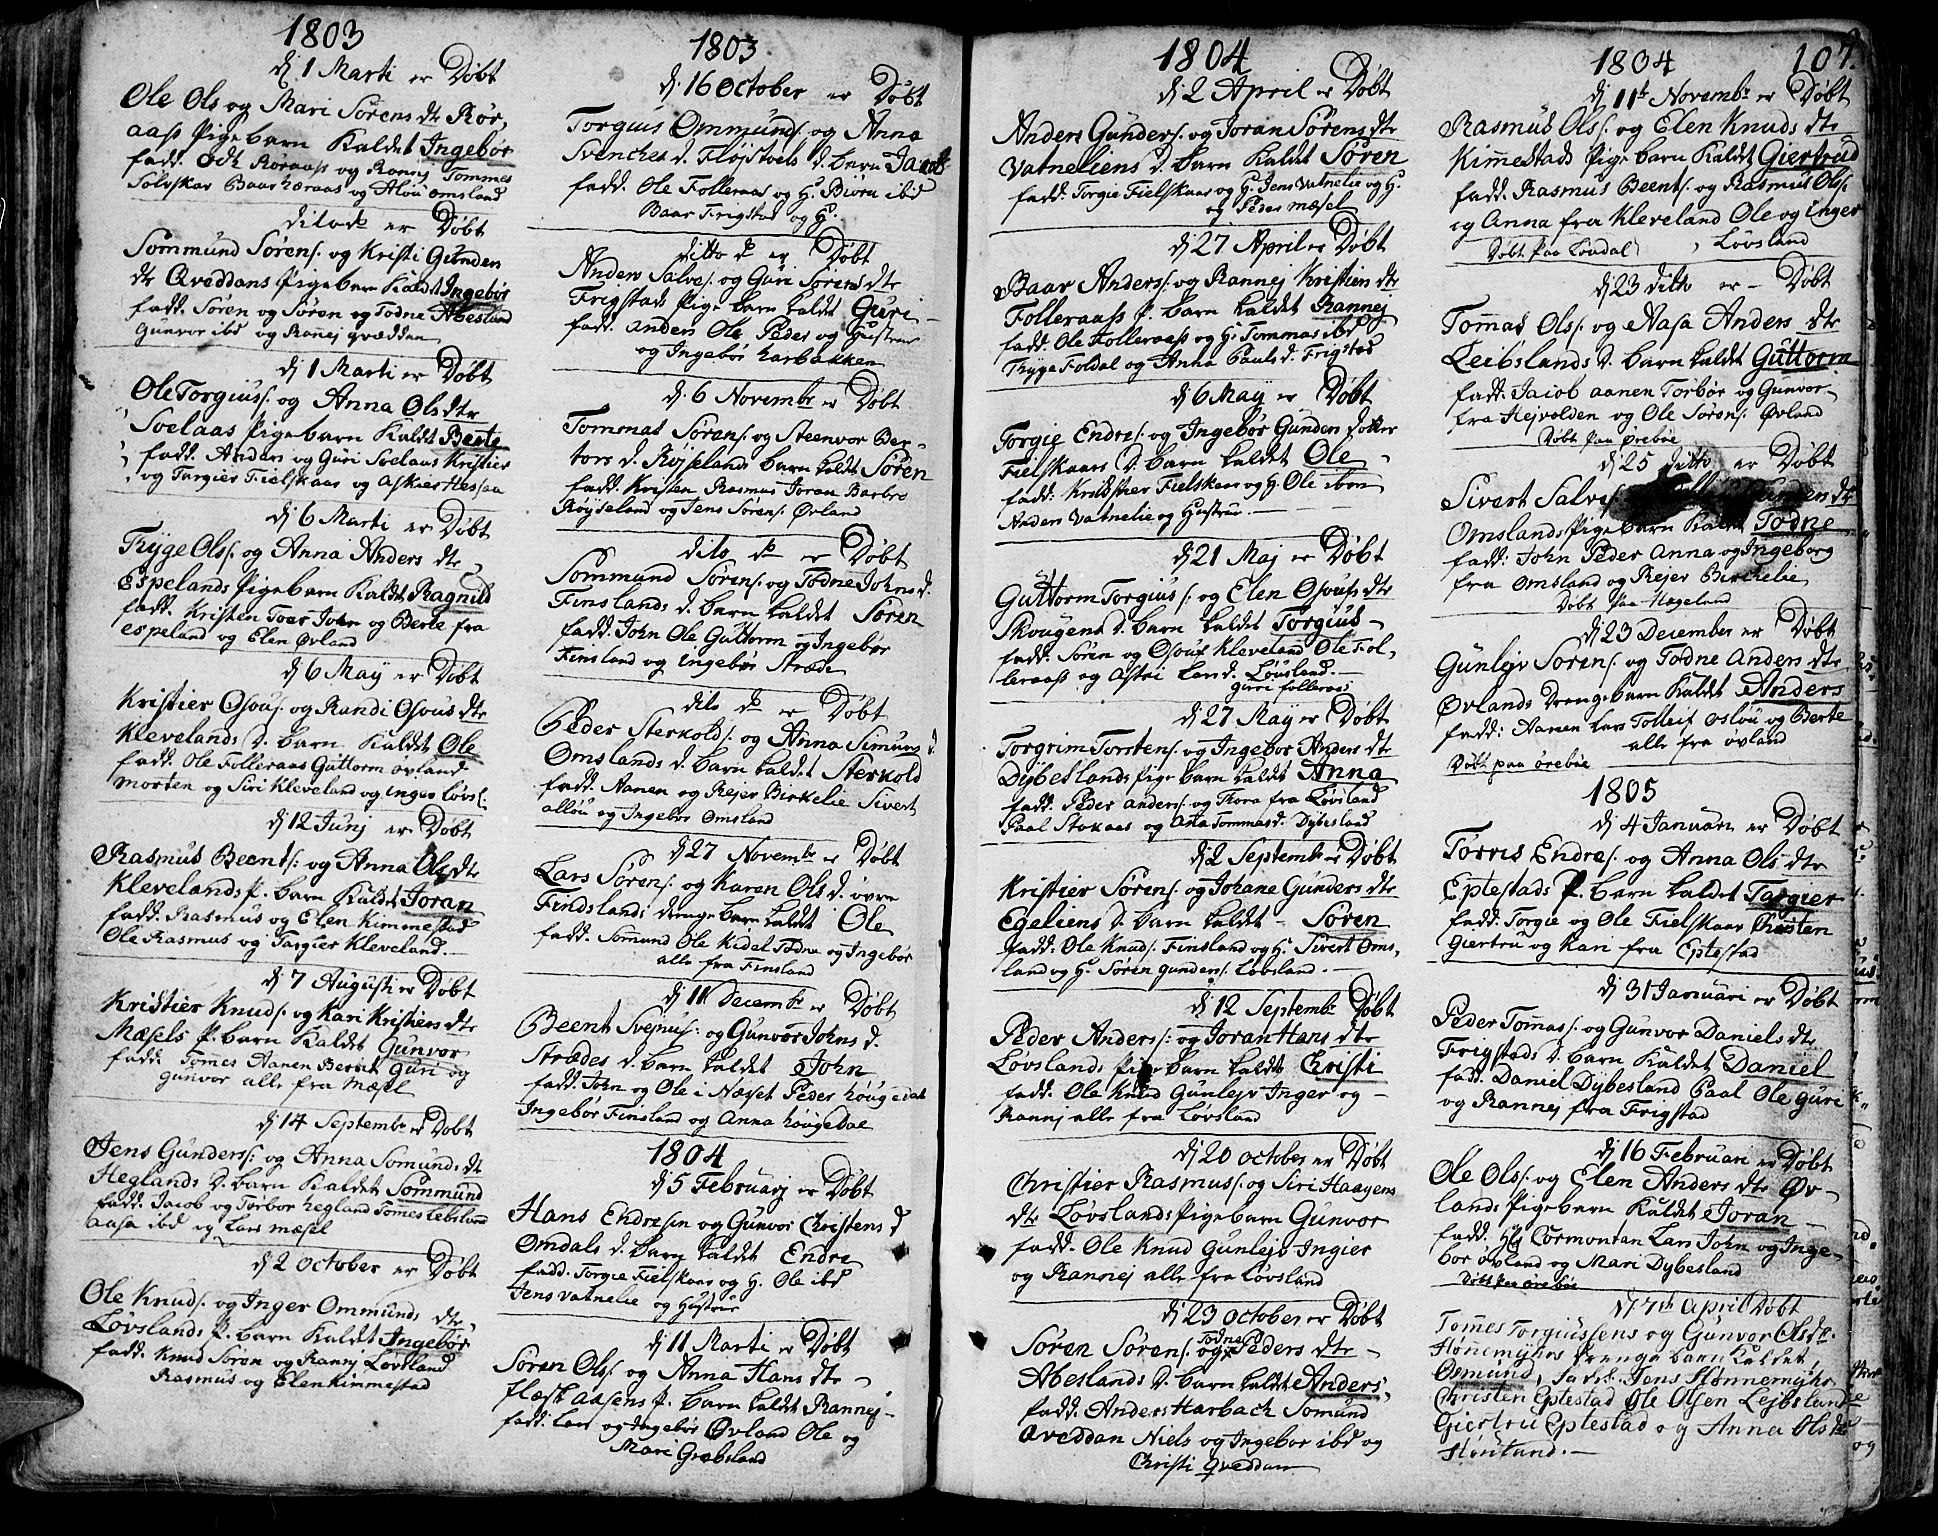 1803
dj 1 Marti er Døbt
Ole Ols og Mari Sørens dtr Rør,
aass Pige barn Kaldet Ingebor
fadd. Odt Røraass og Ranej Tommes
Solvskar Baar høraas og Aloü omsland
dito do er Døbt
Sommund Sørens. og Kristi Gunders
dtr Qveddans Pige barn Kaldt Ingebør
fadd. Søren og Søren og Todne Abesland
Gunvor ibd og Ranej qvæddan,
dj 1 Marti er Døbt
Ole Torgius. og Anna Ols dtr
Soelaas Pige barn Kaldet Berte
fadd. Anders og Guri Soelaas Kristier
og Targier Fielskaas og Askier
dj 6 Marti er Døbt
Tryge Ols. og Anna Anders dtr
Espelands Pige barn Kaldt Ragnild
fadd. Kristen Toer John og Berte fra
espeland og Elen Øvland
dj 6 May er Døbt
Kristier Osous. og Randi Osous dtr
Klevelands d. barn Kaldet Ole
fadd. Ole Folleraas Guttorm øvland
morten og Siri Kleveland og Inger Løvs.
dj 12 Junj er Døbt
Rasmus Beents. og Anna Ols dtr
Klevelands P. barn Kaldet Joran
fadd. Rasmus og Elen Kimmestad
Ole Rasmus og Targier Kleveland.
dj 7 Augusti er Døbt
Kristier Knuds. og Kari Kristiers dtr
Mæsels P. barn Kaldet Gunvor
fadd. Tommes Aanen Berent Guri og
gunvor alle fra Mæsel
dj 14 Septembr er Døbt
Jens Gunders. og Anna Somunds dtr
Heglands d. barn Kaldet Sommund
fadd. Jacob og Torbor hegland Tommes Lebsland
aasa ibd og Lars mæsel
dj 2 october er Døbt
Ole Knuds. og Inger Ommunds dtr,
Løvslands P. barn Kaldet Ingebør
fadd. Knud Søren og Ranej Løvsland
Rasmus og Elen kimmestad
1803
dj. 16 October er Døbt
Torguis Ommunds. og Anna
Svenches d. Fløjstøels d. barn Jacob
fadd. Ole Folleraas og H. Biørn ibd
Baar Frigstad og H.
ditto do er Døbt
Anders Salves. og Guri Sørens dtr
Frigstads Pige barn kaldt Guri
fadd. anders Ole Peder og Hustrue
og Ingebør harbakken
dj. 6 Novembr er Døbt
Tommas Sørens. og Steenvor Ber-
tors d. Røjselands barn kaldt Søren
fadd. Kristen Rasmus Joran Barbro
Røyseland og Jens Sørens. Øvland
dito do er Døbt
Sommund Sørens. og Todne Johns d.
Finslands d. barn kaldet Søren
fadd. John Ole Guttorm og Ingebør
Finsland og ingebør Stræde
dito do er Døbt
Peder Sterkolds. og Anna Simuns d
Omslands d. barn kaldet Sterkold
fadd. Aanen og Rejer Birkelie Sivert
alloü og Ingebør omsland
dj 27 Novembr er Døbt
Lars Sørens. og Karen Ols d. øvre
Findslands drenge barn kaldet Ole
fadd. Sommund Ole Kidel Todne og Ingebør
alle fra Finsland
dj 11 Decembr er Døbt
Beent Svejnus. og Gunvor Johns d.
Strædes d. barn kaldet John
fadd. John og Ole i Næset Peder høugedal
Ingebør Finsland og Anna høugedal
1804
dj 5 Februarj er Døbt
Hans Endresen og Gunvor Christens d
Omdals d. barn kaldet Endre
fadd. Torgie Fielskaar og H. Ole ibd
Jens Vatnelie og Hustrue
dj 11 Marti er Døbt
Søren Ols. og Anna Hans dtr
P. barn kaldet Rannej
fadd. Lars og Ingebør Øvland Ole og
Mari Grøbsland
1804
dj 2 April er Døbt
Anders Gunders. og Joran Sørens dtr
Vatneliens d. barn kaldet Søren
fadd. Torgie Fielskaar og H. Jens Vatnelie og H.
og Peder mæsel
dj 27 April er Døbt
Baar Anders. og Rannej Kristiens dtr
Folleraass P. barn kaldet Rannej
fadd. Ole Folleraass og H. Tommas ibd
Tryge Foldal og Anna Pauls d. Frigstad
dj 6 May er Døbt
Torgie Endres. og Ingebør Gunders dotter
Fielskaars d. barn kaldet Ole
fadd. Kristier Fielskaar og H. Ole ibm
Anders Vatnelie og Hustrue.
dj 21 Maj er Døbt
Guttorm Torgius. og Elen Osoufs dtr
Skougens d. barn kaldet Torgius
fadd. Søren og Osouf Kleveland Ole Fol,
leraass og Astri Land. Løvsland.
Guri folleraas
dj 27 May er Døbt
Torgrim Torstens. og Ingebor Anders dtr
Dybeslands Pige barn kaldt Anna
fadd. Peder anders. og Thora fra Løvsland
Paal Stokaas og Asta Tommas d. Dybesland
dj 2 Septembr er Døbt
Kristier Sørens. og Johane Gunders dtr
Egeliens d. barn kaldet Søren
fadd. Ole Knuds. Finsland og H. Sivert Oms,
land og H. Søren gunders. Løvsland.
dj 12 Septembr Døbt
Peder Anders. og Joran Hans dtr
Løvslands Pige barn kaldt Christi
fadd. Ole Knud Gunlejv Inger og
Rannej alle fra Løvsland
dj 20 october er Døbt
Christier Rasmus. og Siri Haagens
dtr Løvslands Pige barn Gunvor
fadd. Ole Knud Gunlejv Ingier
og Rannej alle fra Løvsland
dj 23 october er Døbt
Søren Sørens. og Todne Peders dtr
Abeslands d. barn kaldet Anders,
fadd. Anders Harbach Somund
Qveddan Niels og Ingebor ibd og
Christi Qveddan
1804
107.
dj 11te Novembr er Døbt
Rasmus Ols. og Elen Knuds dtr
Kimestads Pige barn Kaldt Giertrud
fadd. Rasmus Beents. og Rasmus Ols.
og Anna fra Kleveland Ole og Inger
Døbt paa Løvdal Løvsland
dj 23 ditto er Døbt
Tommas Ols. og Aasa Anders dtr
Leibslands d. barn kaldet Guttorm
fadd. Jacob aanen Torbør og Gunvor
fra Hejvolden og Ole Sørens. Øvland
Døbt paa ørebøe
dj 25 ditto er Døbt
Sivert Salves. Gunders dtr
Omslands Pige barn Kaldt Todne
fadd: John Peder Anna og Ingeborg
fra omsland og Rejer Birkelie
Døbt paa Hægeland
dj 23 December er Døbt
Gunlejv Sørens. og Todne Anders dtr
Øvlands Drenge barn Kaldet Anders
fadd: Aanen Lars Tolleif osloü og Berte
alle fra øvland
Døbt paa ørebøe
1805
dj 4 Januari er Døbt
Torris Endres. og Anna Ols dtr
Eptestads P. barn kaldet Targier
fadd. Torgie og Ole Fielskaar Christen
Giertru og Kari fra Eptestad
dj 31 Januari er Døbt
Peder Tommas. og Gunvor Daniels dtr
Frigstads d. barn Kaldet Daniel
fadd. Daniel Dybesland Paal Ole guri
og Rannej fra Frigstad
dj 16 Februari er Døbt
Ole Ols. og Elen Anders dtr Øv-
lands Pige barn Kaldet Joran
fadd. Hs Cormontan Lars John og Inge-
bor øvland og Mari Dybesland
Døbt paa ørebøe
d 7de April Døbt
Tommes Torgiussens og Gunvor Ols dr.
Hønemyhrs Drenge barn Kaldet
Osmund, fadd. Jens Hønnemyhr
Christen Eptestad Ole Olsen Lejbsland
Giertru Eptestad og Anna Ols dtr